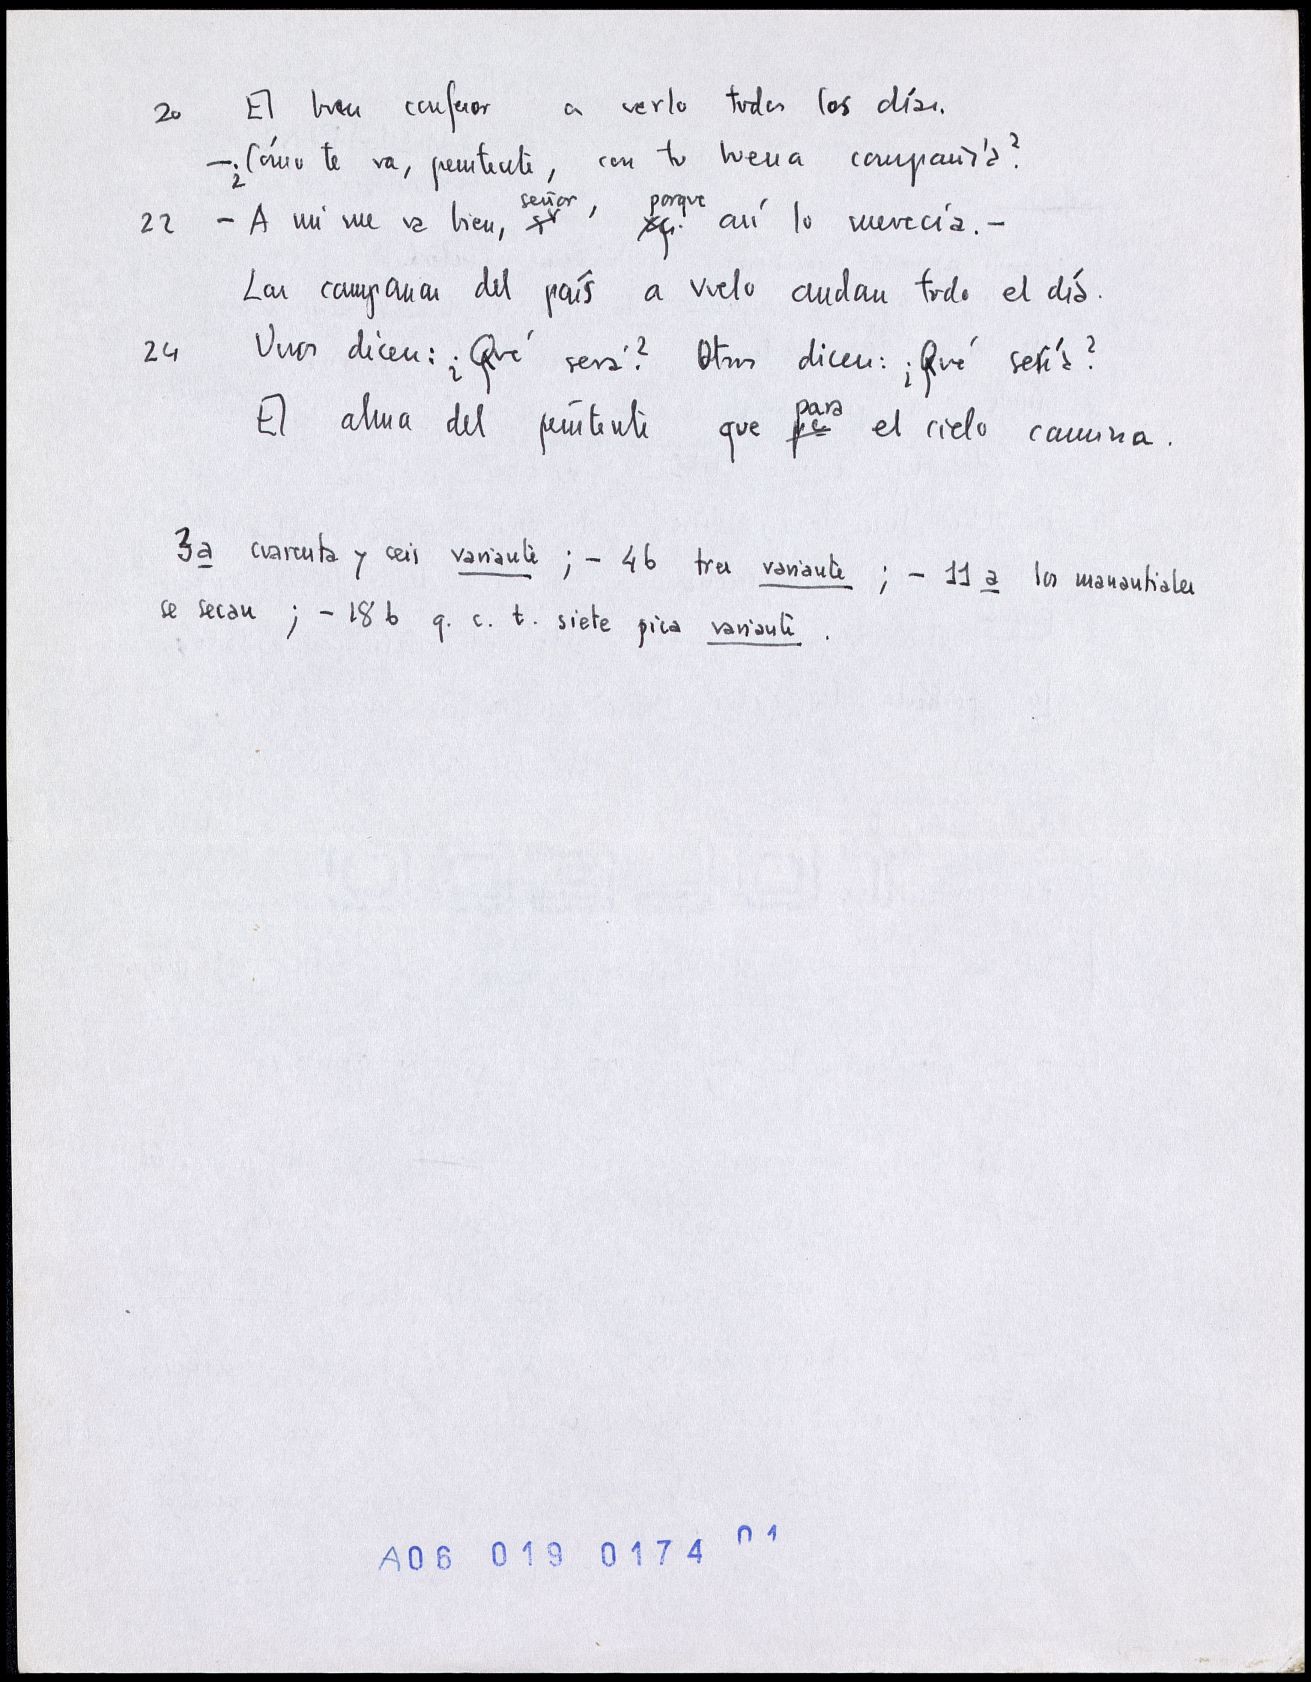 20 El buen confesor a verlo todos los días.
— ¿Cómo te va, penitente, con tu buena compañía?
22 — A mí me va bien, señor, porque así lo merecía. —
Las campanas del país a vuelo andan todo el día.
24 Unos dicen: ¿Qué será? Otros dicen: ¿Qué sería?
El alma del penitente que para el cielo camina.
3a cuarenta y seis variante; — 4b tres variante; — 11a los manantiales
se secan; — 18b q. c. t. siete pica variante.
A06 019 0174 01